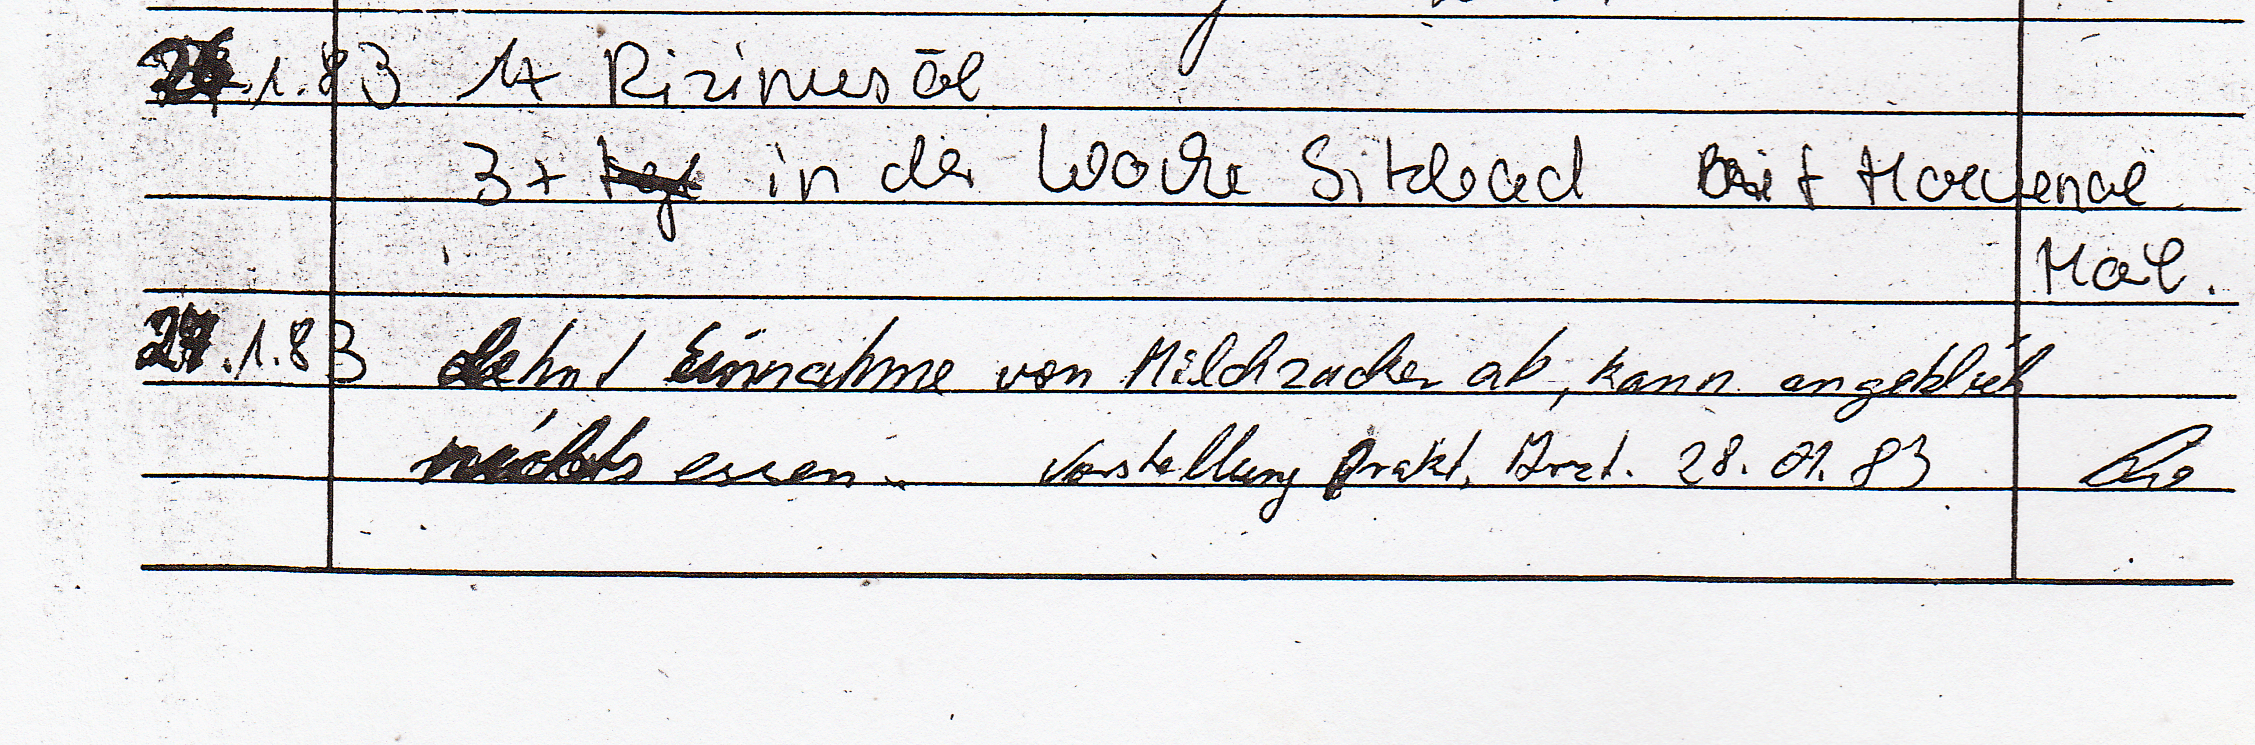 .1.83 1x Rizinusöl
3x in der Woche Sitzbad
27.1.83 lehnt Einnahme von Milchzucker ab, kann angeblich
nichts essen. Vorstellung prakt. Arzt. 28.01.83